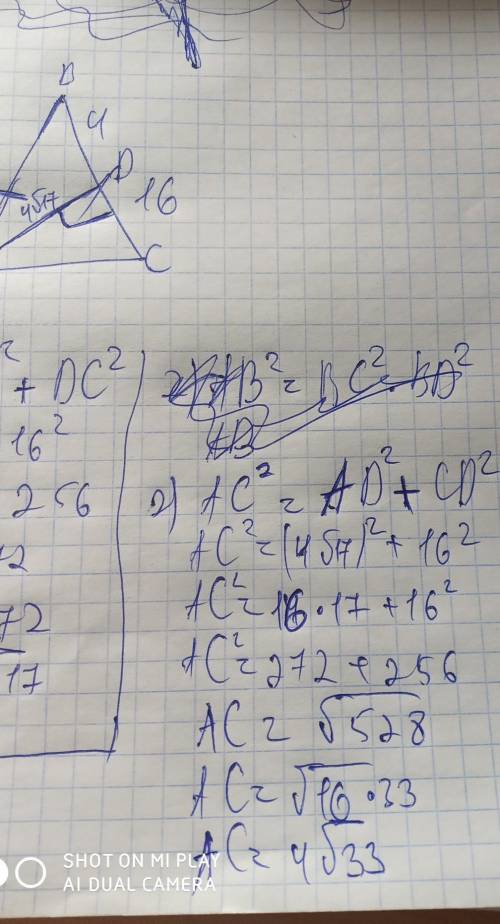 B
4
D
4√17
16
C
2
+ DC²
16²
256
72
17
B² = BC² - BD²
AB
2) AC² = AD² + CD²
AC² = (4√17)² + 16²
AC² = 16·17 + 16²
AC² = 272 + 256
AC = √528
AC = √16·33
AC = 4√33
SHOT ON MI PLAY
AI DUAL CAMERA